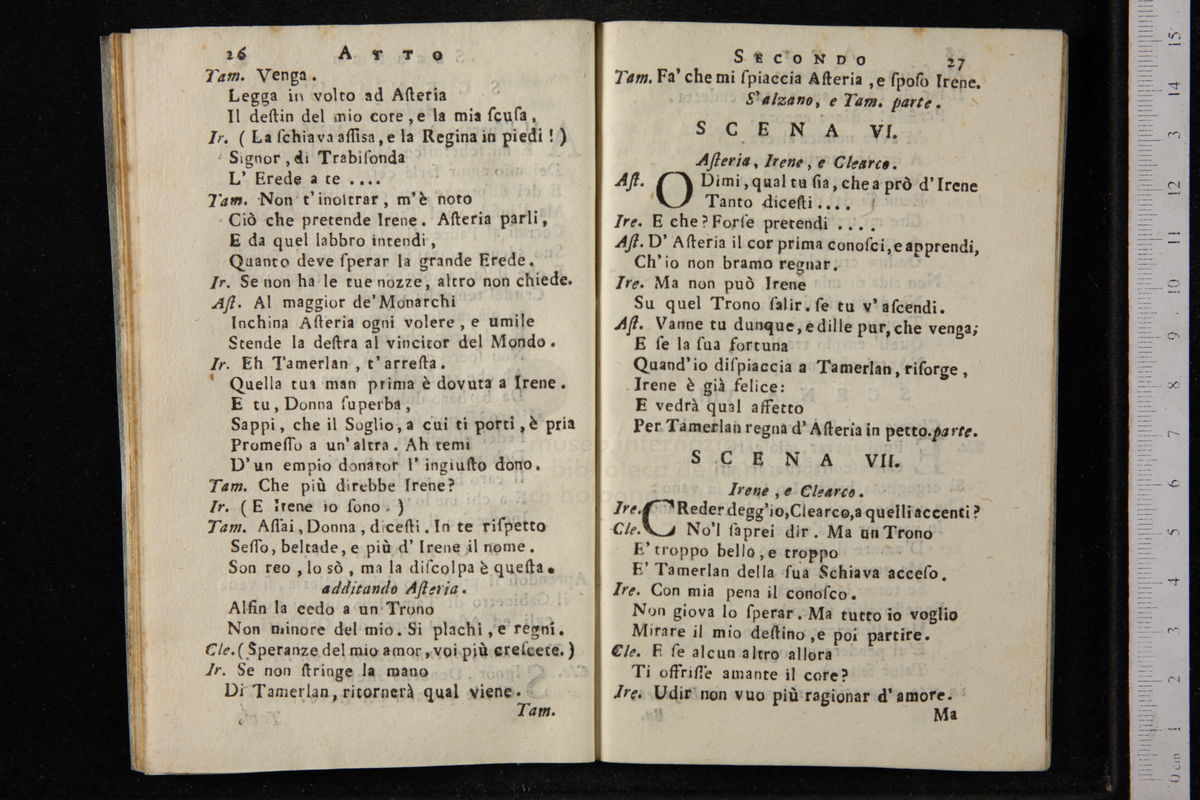 26 ATTO
Tam. Venga.
Legga in volto ad Aſteria
Il deſtin del mio core, e la mia ſcuſa.
Ir. (La ſchiava aſſiſa, e la Regina in piedi!)
Signor, di Trabiſonda
L' Erede a te ....
Tam. Non t'inoltrar, m'è noto
Ciò che pretende Irene. Aſteria parli,
E da quel labbro intendi,
Quanto deve ſperar la grande Erede.
Ir. Se non ha le tue nozze, altro non chiede.
Aſt. Al maggior de' Monarchi
Inchina Aſteria ogni volere, e umile
Stende la deſtra al vincitor del Mondo.
Ir. Eh Tamerlan, t'arreſta.
Quella tua man prima è dovuta a Irene.
E tu, Donna ſuperba,
Sappi, che il Soglio, a cui ti porti, è pria
Promeſſo a un' altra. Ah temi
D'un empio donator l' ingiuſto dono.
Tam. Che più direbbe Irene?
Ir. (E Irene io ſono.)
Tam. Aſſai, Donna, diceſti. In te riſpetto
Seſſo, beltade, e più d' Irene il nome.
Son reo, lo sò, ma la diſcolpa è queſta.
additando Aſteria.
Alfin la cedo a un Trono
Non minore del mio. Si plachi, e regni.
Cle. (Speranze del mio amor, voi più creſcete.)
Ir. Se non ſtringe la mano
Di Tamerlan, ritornerà qual viene.
Tam.
SECONDO 27
Tam. Fa' che mi ſpiaccia Aſteria, e ſpoſo Irene.
S'alzano, e Tam. parte.
SCENA VI.
Aſteria, Irene, e Clearco.
Aſt. ODimi, qual tu ſia, che a prò d'Irene
Tanto diceſti ....
Ire. E che? Forſe pretendi ....
Aſt. D' Aſteria il cor prima conoſci, e apprendi,
Ch'io non bramo regnar.
Ire. Ma non può Irene
Su quel Trono ſalir. ſe tu v' aſcendi.
Aſt. Vanne tu dunque, e dille pur, che venga;
E ſe la ſua fortuna
Quand'io diſpiaccia a Tamerlan, riſorge,
Irene è già felice:
E vedrà qual affetto
Per Tamerlan regna d'Aſteria in petto. parte.
SCENA VII.
Irene, e Clearco.
Ire. CReder degg'io, Clearco, a quelli accenti?
Cle. No'l ſaprei dir. Ma un Trono
E' troppo bello, e troppo
E' Tamerlan della ſua Schiava acceſo.
Ire. Con mia pena il conoſco.
Non giova lo ſperar. Ma tutto io voglio
Mirare il mio deſtino, e poi partire.
Cle. E ſe alcun altro allora
Ti offriſſe amante il core?
Ire. Udir non vuo più ragionar d'amore.
Ma
0 cm 1 2 3 4 5 6 7 8 9 10 11 12 13 14 15